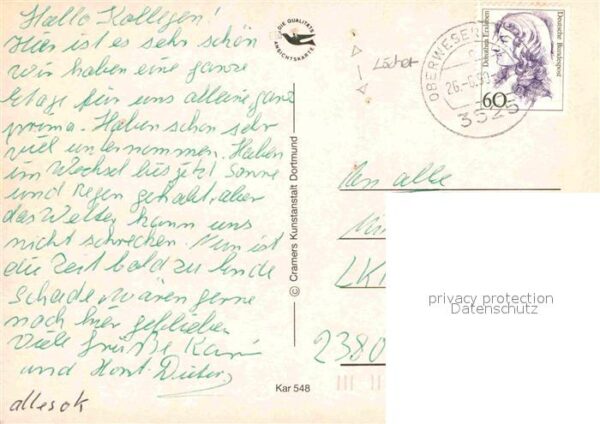 Hallo Kollegen!
Hier ist es sehr schön
wir haben eine ganze
Etage für uns alleine ganz
prima. Haben schon sehr
viel unternommen. Haben
im Wechsel bis jetzt Sonne
und Regen gehabt, aber
das Wetter kann uns
nicht schrecken. Nun ist
die Zeit bald zu Ende
Schade, wären gerne
noch hier geblieben
Viele Grüße Karin
und Horst Dieter
alles ok
DIE QUALITÄTS
ANSICHTSKARTE
© Cramers Kunstanstalt Dortmund
Kar 548
Löcher
OBERWESER
26.-6.90
3525
Dorothea Erxleben
Deutsche Bundespost
60
An alle
LK
2380
privacy protection
Datenschutz